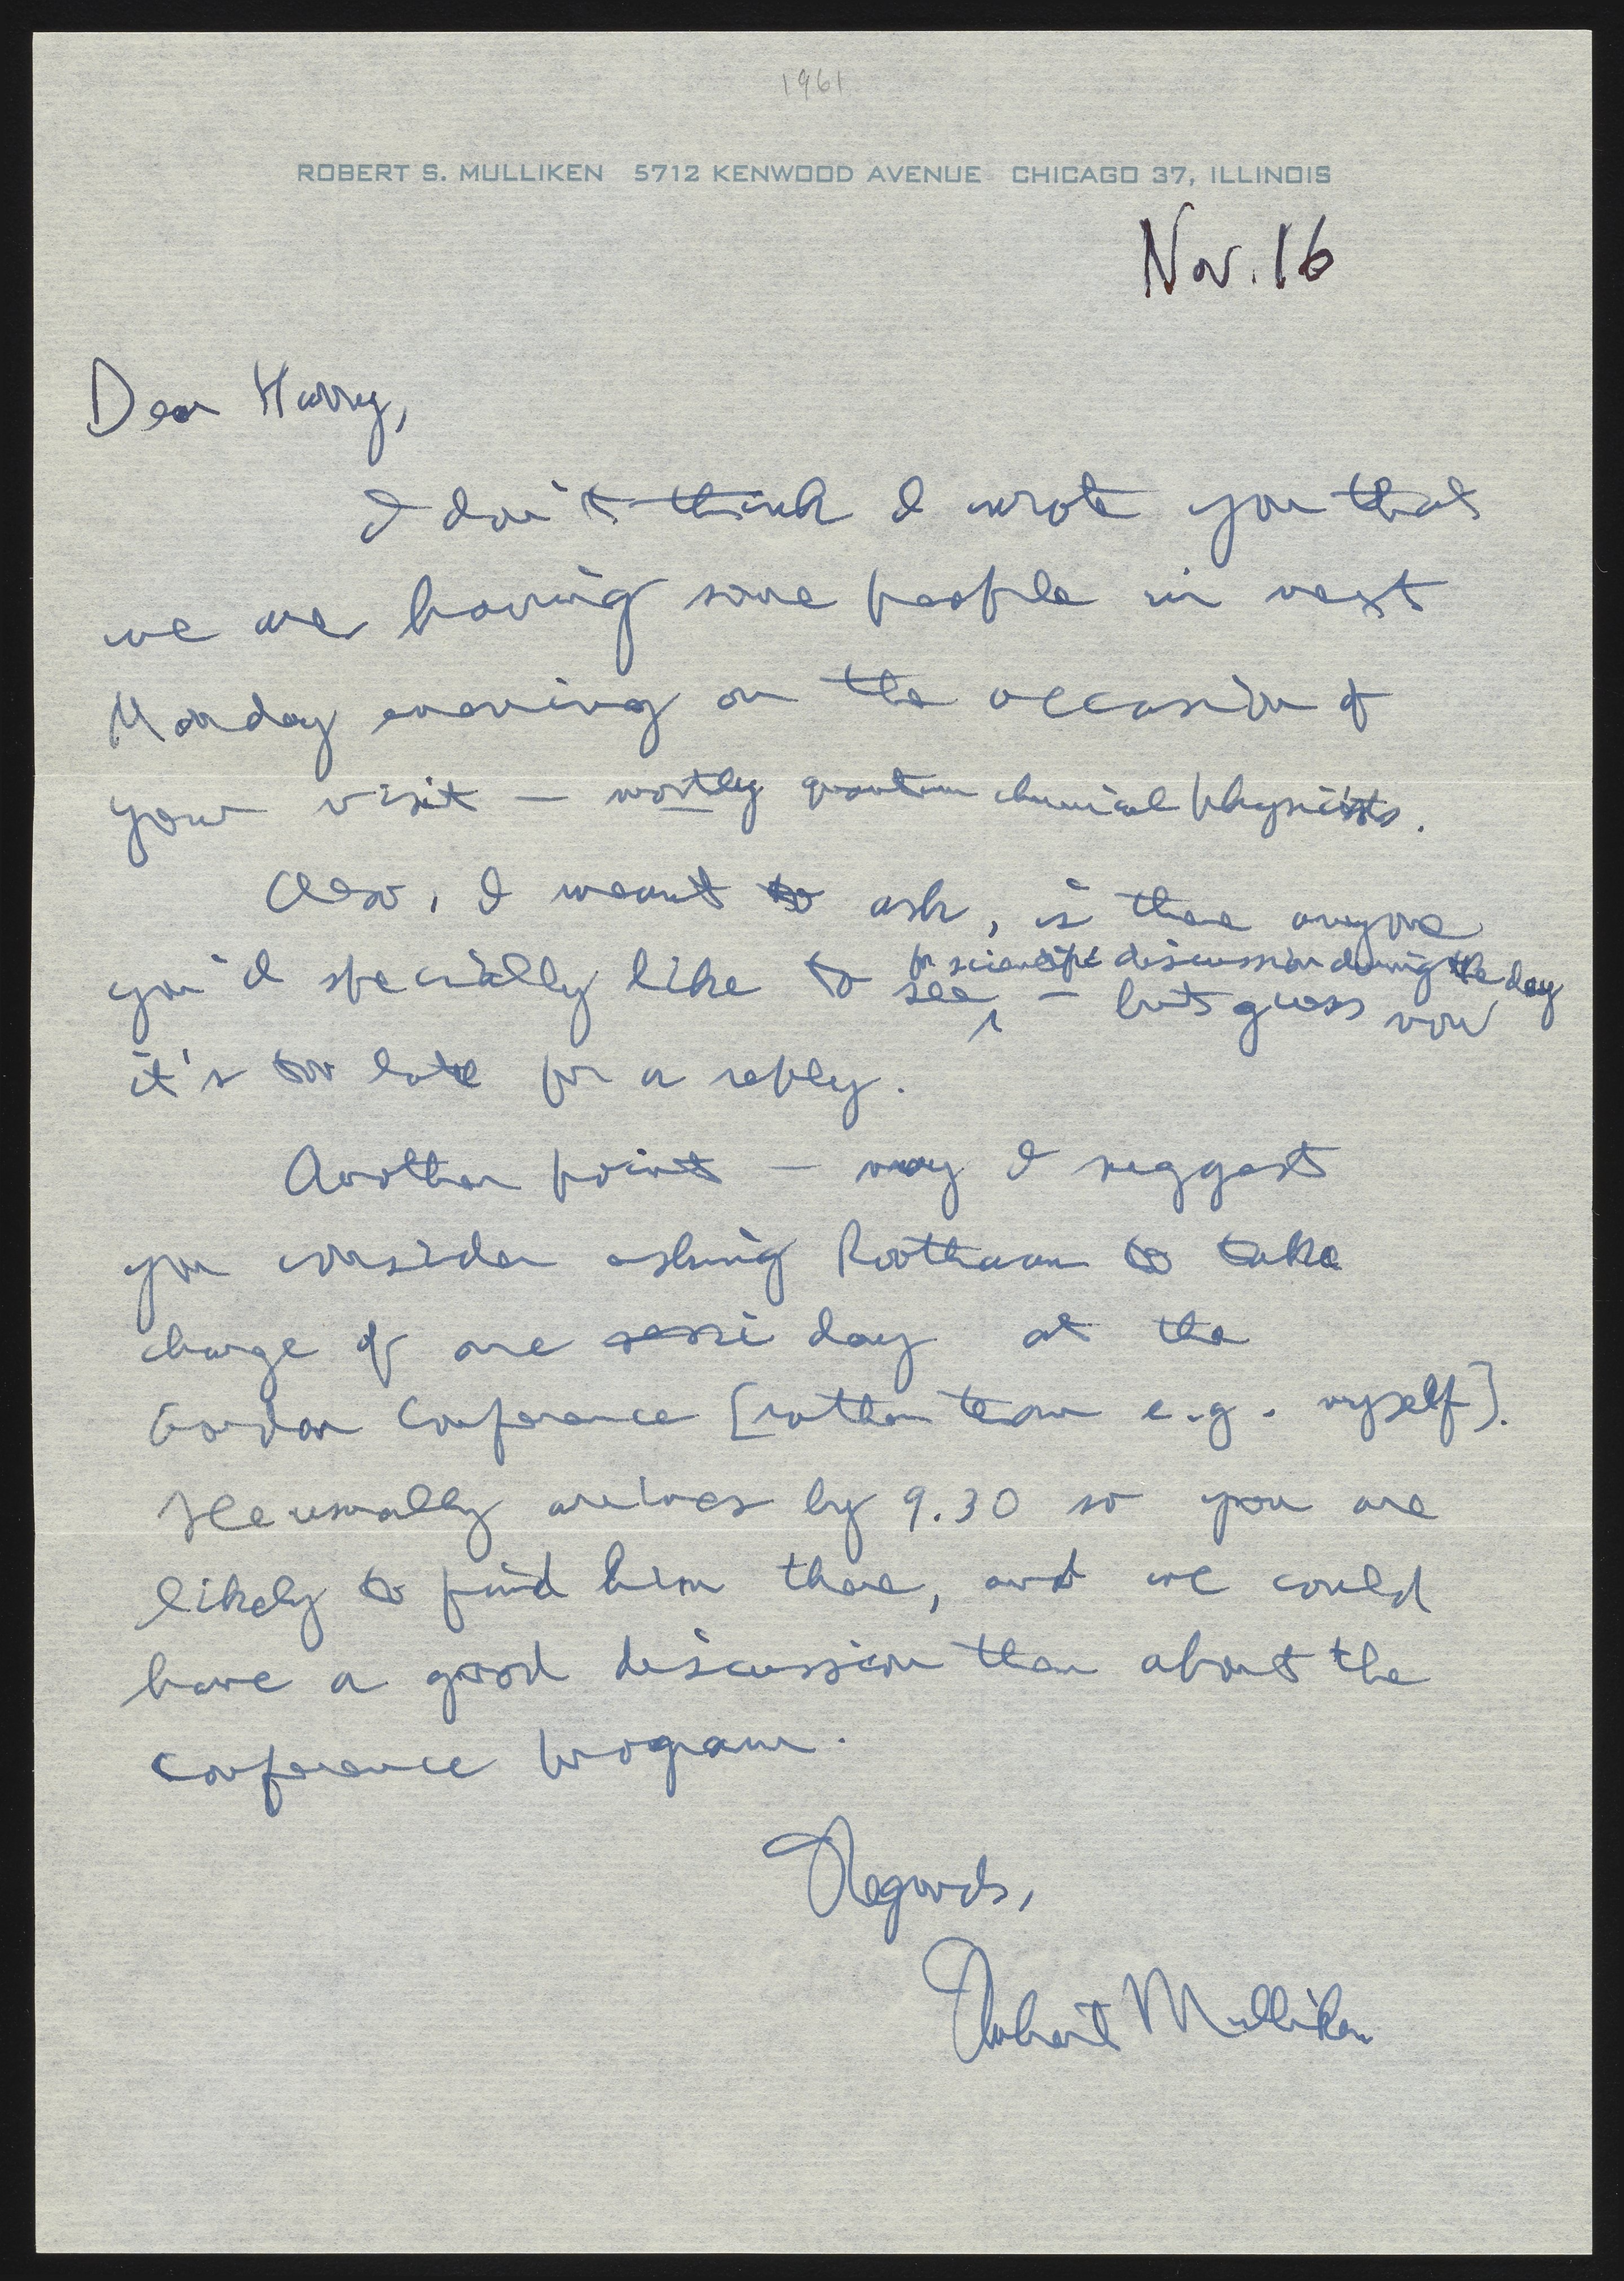 1961
ROBERT S. MULLIKEN 5712 KENWOOD AVENUE CHICAGO 37, ILLINOIS
Nov. 16
Dear Harry,
I don't think I wrote you that
we are having some people in next
Monday evening on the occasion of
your visit — mostly quantum chemical physicists.
Also, I meant to ask, is there anyone
for scientific discussion during the day
you'd specially like to see – but guess now
it's too late for a reply.
Another point — may I suggest
you consider asking Roothaan to take
charge of one sessi day at the
Gordon Conference [rather than e.g. myself].
He usually arrives by 9.30 so you are
likely to find him there, and we could
have a good discussion then about the
conference program.
Regards,
Robert Mulliken